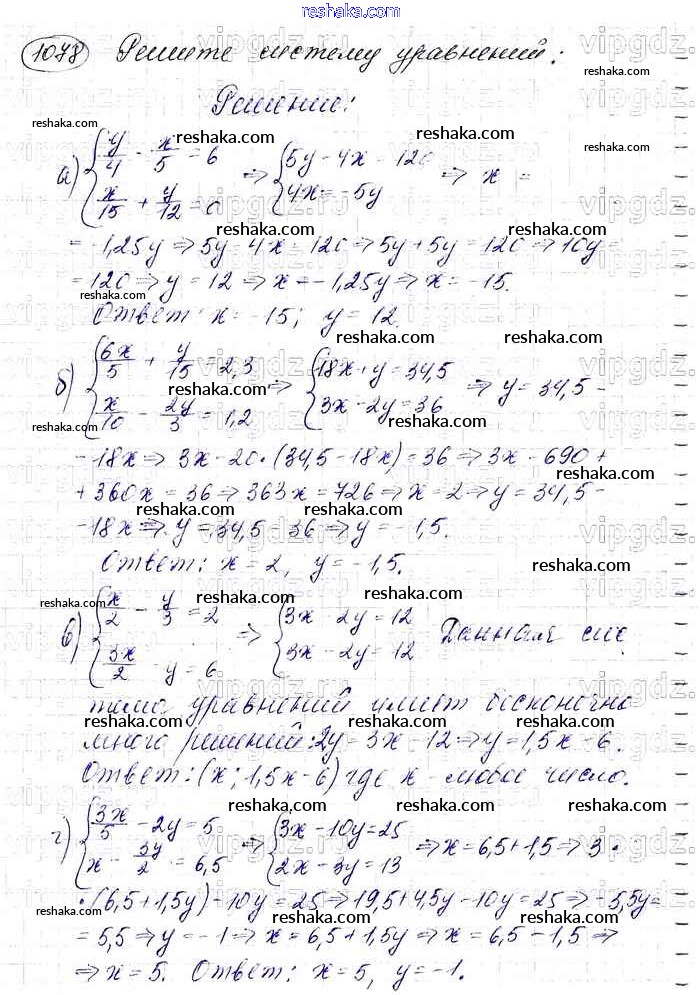 reshaka.com
1078 Решите систему уравнений:
Решение:
а) { y/4 - x/5 = 6 ⇒ { 5y - 4x = 120 ⇒ x =
x/15 + y/12 = 0 4x = -5y
= -1,25y ⇒ 5y - 4x = 120 ⇒ 5y + 5y = 120 ⇒ 10y =
= 120 ⇒ y = 12 ⇒ x = -1,25y ⇒ x = -15.
Ответ: x = -15; y = 12.
б) { 6x/5 + y/15 = 2,3 ⇒ { 18x + y = 34,5 ⇒ y = 34,5 -
x/10 - 2y/3 = 1,2 3x - 2y = 36
- 18x ⇒ 3x - 20·(34,5 - 18x) = 36 ⇒ 3x - 690 +
+ 360x = 36 ⇒ 363x = 726 ⇒ x = 2 ⇒ y = 34,5 -
- 18x ⇒ y = 34,5 - 36 ⇒ y = -1,5.
Ответ: x = 2, y = -1,5.
в) { x/2 - y/3 = 2 ⇒ { 3x - 2y = 12 Данная сис
3x/2 - y = 6 3x - 2y = 12
тема уравнений имеет бесконечно
много решений: 2y = 3x - 12 ⇒ y = 1,5x - 6.
Ответ: (x; 1,5x - 6) где x - любое число.
г) { 3x/5 - 2y = 5 ⇒ { 3x - 10y = 25 ⇒ x = 6,5 + 1,5 ⇒ 3·
x - 3y/2 = 6,5 2x - 3y = 13
·(6,5 + 1,5y) - 10y = 25 ⇒ 19,5 + 4,5y - 10y = 25 ⇒ -5,5y =
= 5,5 ⇒ y = -1 ⇒ x = 6,5 + 1,5y ⇒ x = 6,5 - 1,5 ⇒
⇒ x = 5. Ответ: x = 5, y = -1.